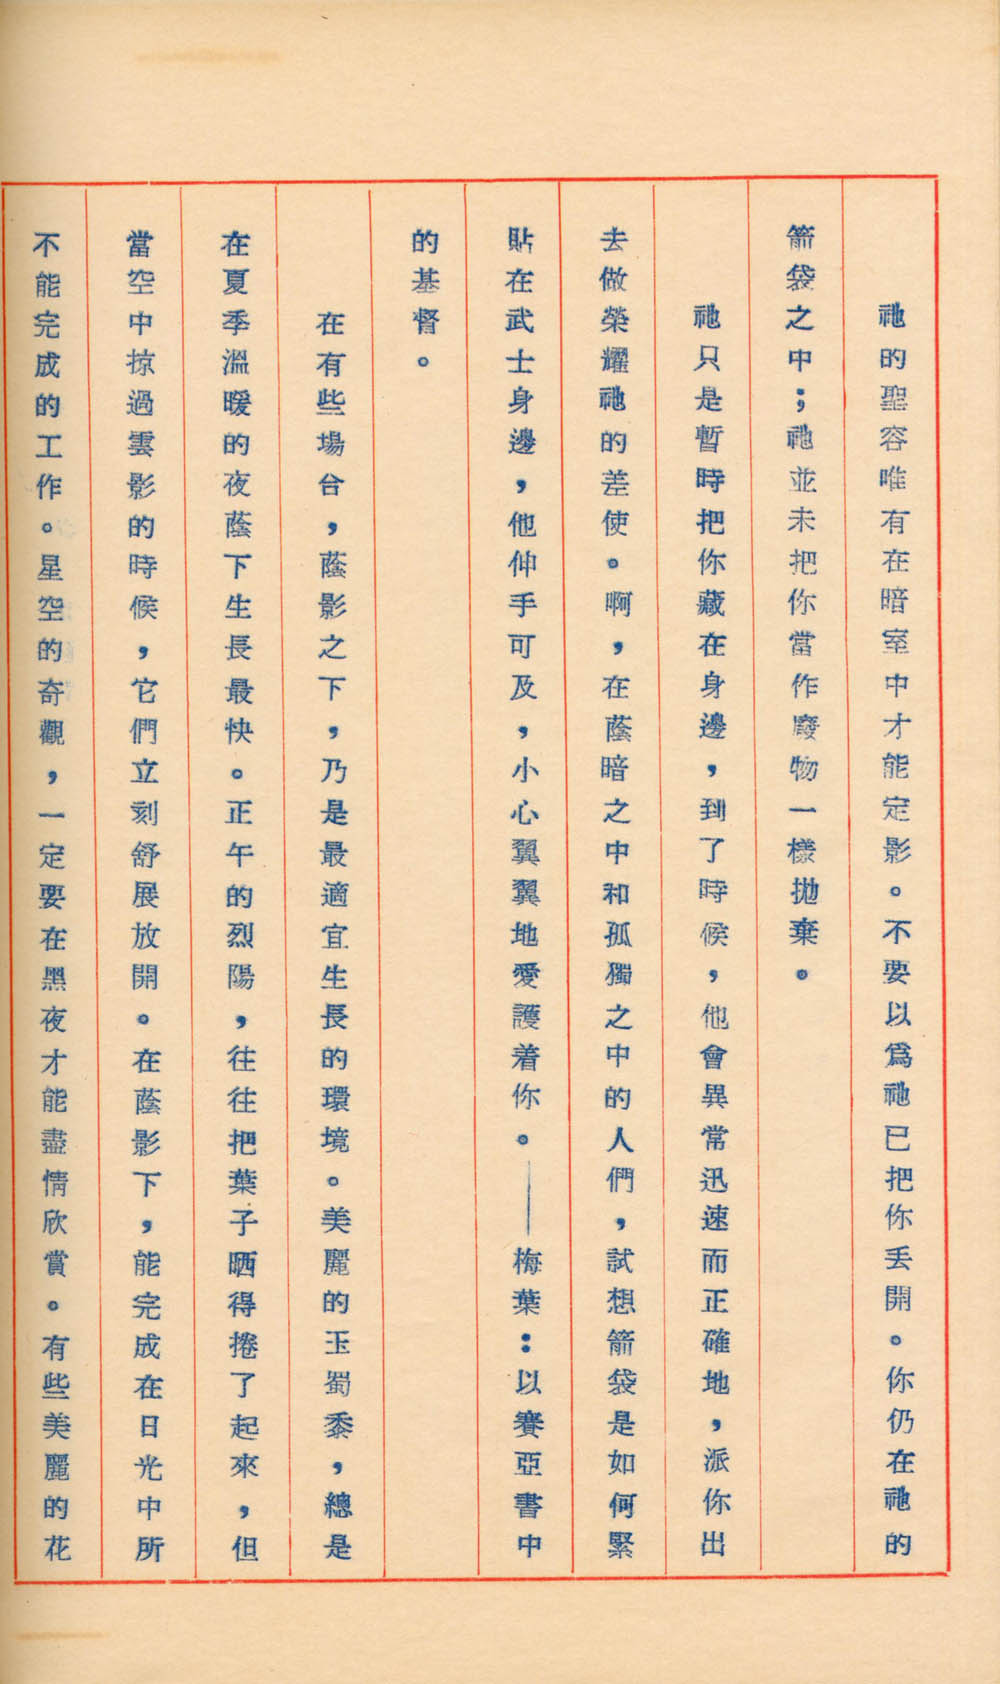 祂的聖容唯有在暗室中才能定影。不要以爲祂已把你丢開。你仍在祂的
箭袋之中；祂並未把你當作廢物一樣拋棄。
祂只是暫時把你藏在身邊，到了時候，他會異常迅速而正確地，派你出
去做榮耀祂的差使。啊，在蔭暗之中和孤獨之中的人們，試想箭袋是如何緊
貼在武士身邊，他伸手可及，小心翼翼地愛護着你。——梅葉：以賽亞書中
的基督。
在有些場合，蔭影之下，乃是最適宜生長的環境。美麗的玉蜀黍，總是
在夏季溫暖的夜蔭下生長最快。正午的烈陽，往往把葉子晒得捲了起來，但
當空中掠過雲影的時候，它們立刻舒展放開。在蔭影下，能完成在日光中所
不能完成的工作。星空的奇觀，一定要在黑夜才能盡情欣賞。有些美麗的花